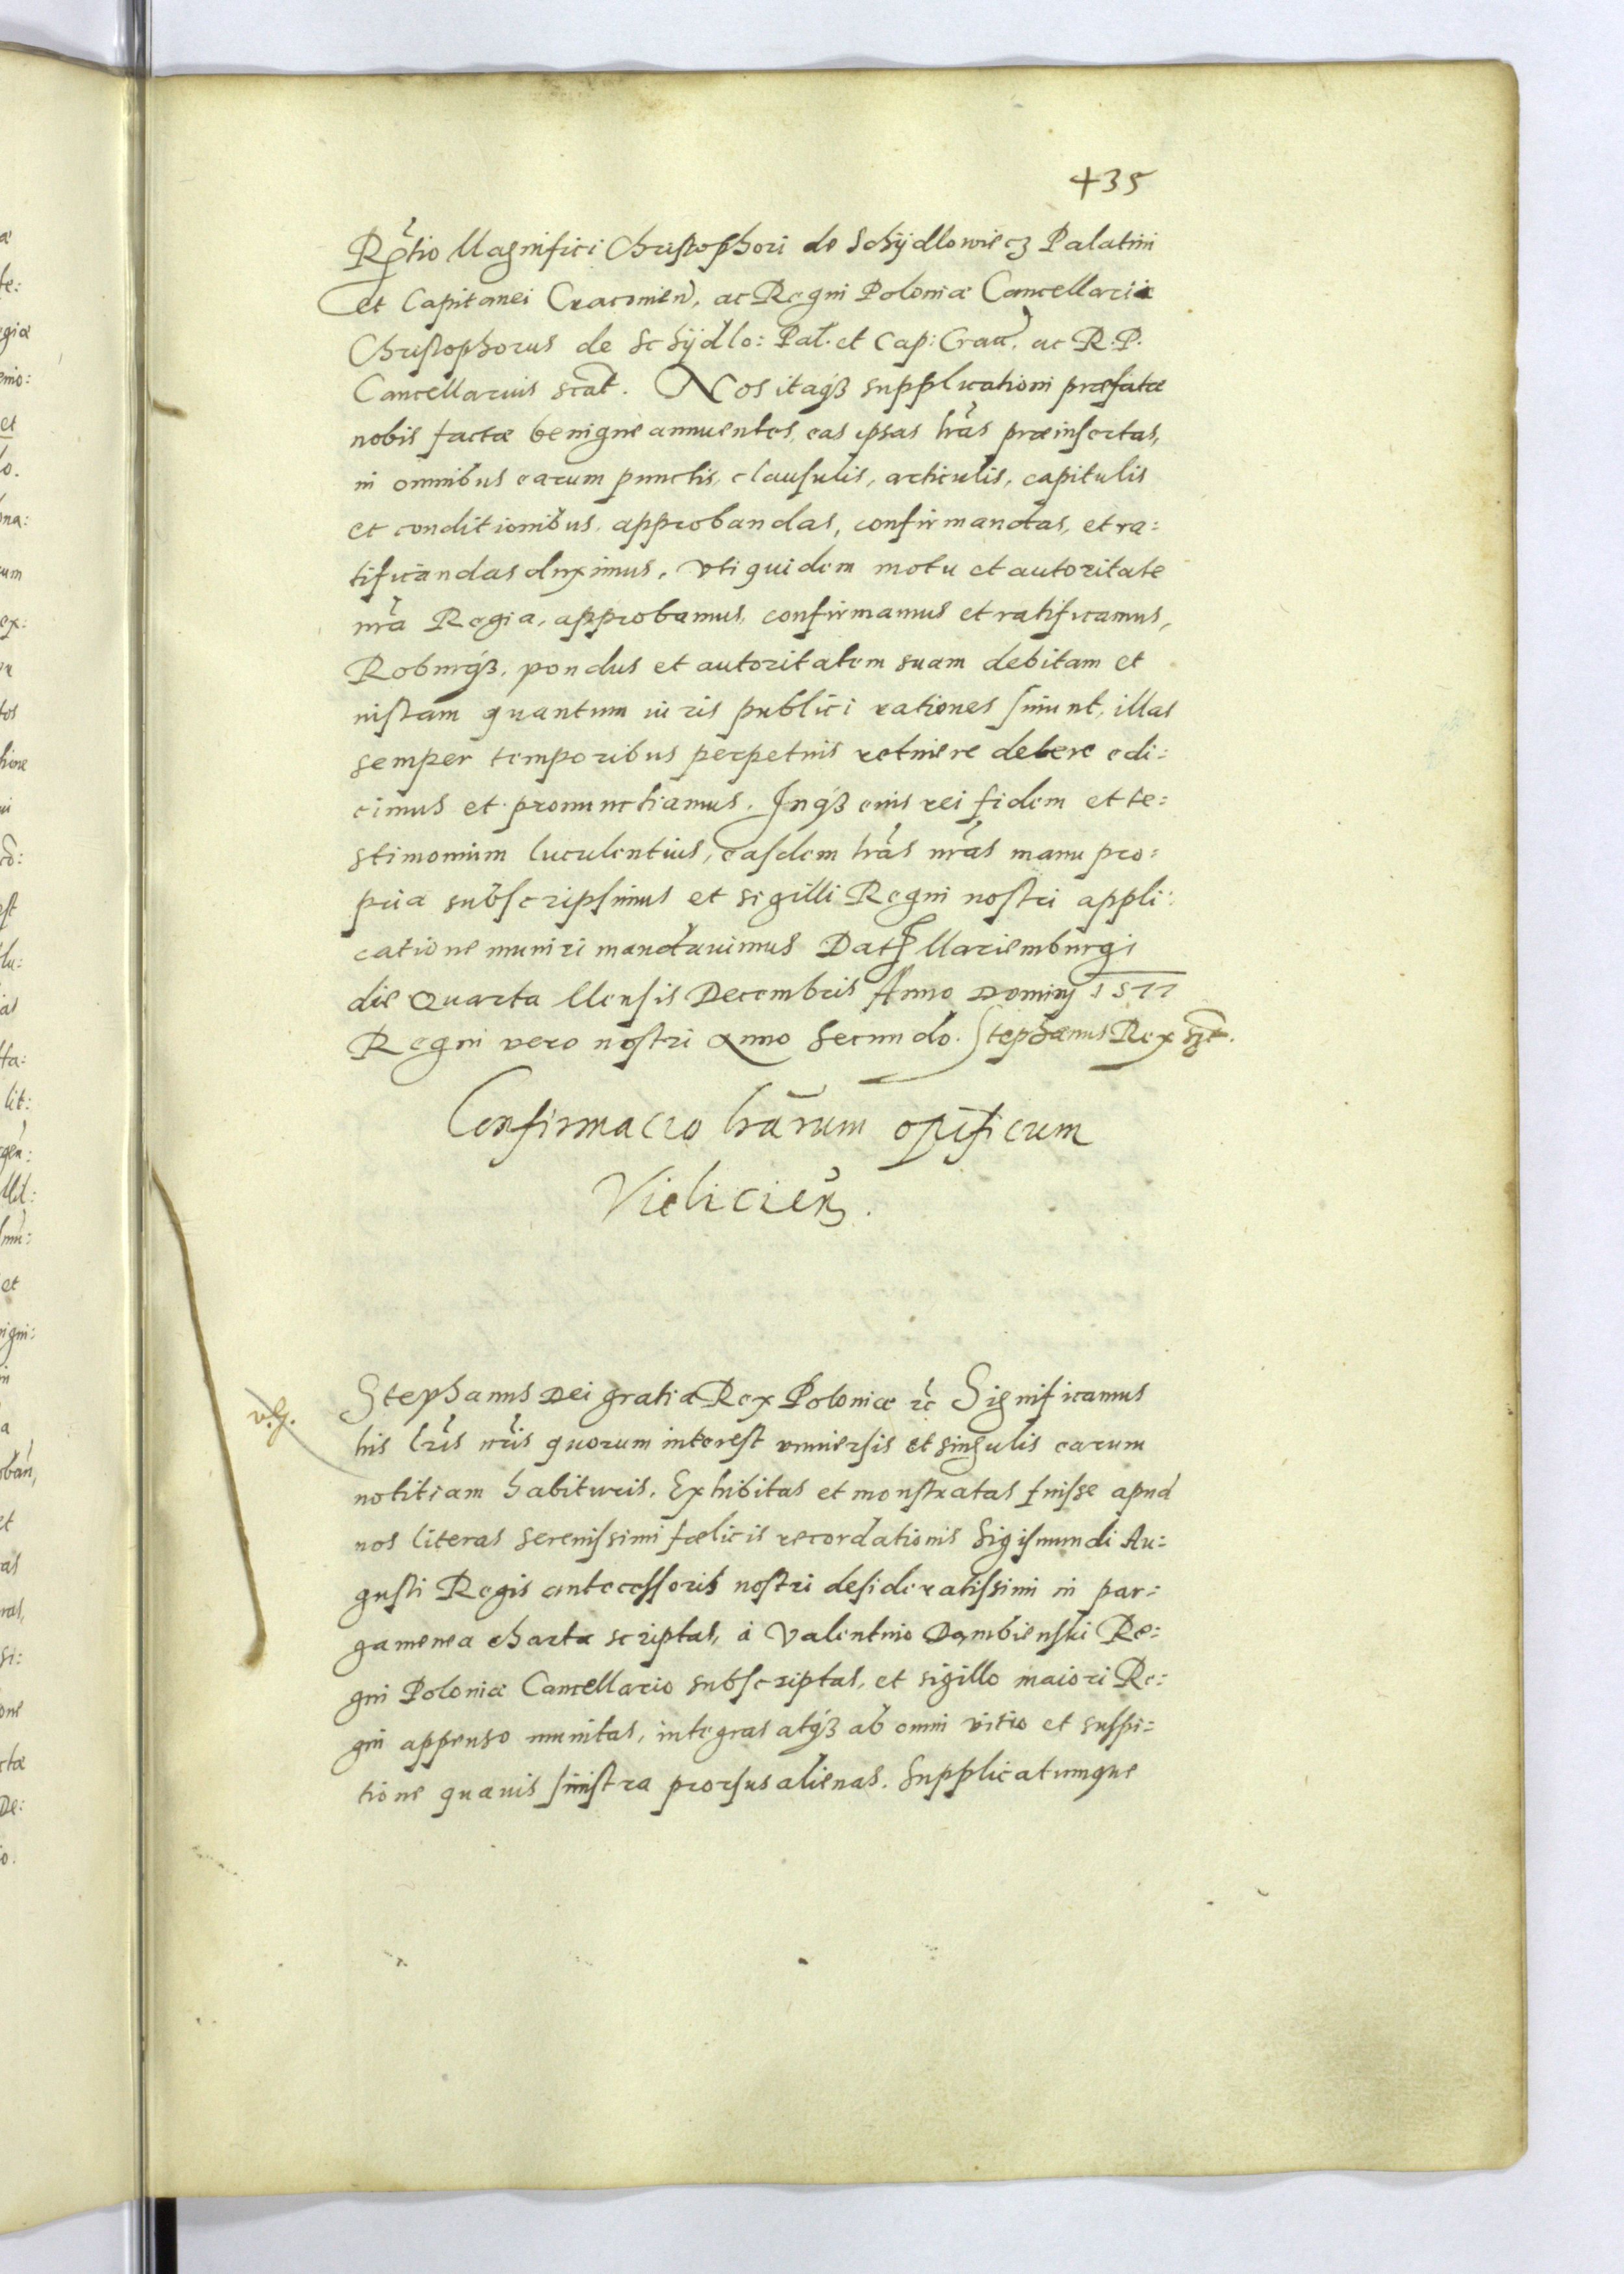 435
Rꝑtio Magnifici Christophori de Schÿdlowiecz Palatini
et Capitanei Cracouień, ac Regni Poloniæ Cancellarii
Christophorus de Schÿdlo: Pal. et Cap: Crac. ac R. P.
Cancellarius scāt. Nos itaqȝ supplicationi præfatæ
nobis factæ benigne annuentes, eas ipsas lrās præinsertas,
in omnibus earum punctis, clausulis, articulis, capitulis
et conditionibus approbandas, confirmandas, et ra:
tificandas duximus, vti quidem motu et autoritate
nrā Regia, approbamus, confirmamus et ratificamus,
Roburqȝ, pondus et autoritatem suam debitam et
iustam quantum iuris publici rationes sinunt, illas
semper temporibus perpetuis retinere debere edi:
cimus et pronunctiamus. Inqȝ eius rei fidem et te:
stimonium luculentius, easdem lrās nrās manu pro:
pria subscripsimus et sigilli Regni nostri appli:
catione muniri mandauimus Datҏ Mariemburgi
die Quarta Mensis Decembris Anno Domini 1577
Regni vero nostri Anno Secundo. Stephanus Rex sst.
Confirmacio lrārum opificum
Vielicień.
v.g.
Stephanus Dei gratia Rex Poloniæ rc̄ Significamus
his lrīs nrīs quorum interest vniuersis et singulis earum
notitiam habituris. Exhibitas et monstratas fuisse apud
nos literas Serenissimi fælicis recordationis Sigismundi Au:
gusti Regis antecessoris nostri desideratissimi in par:
gamenea charta scriptas, à Valentino Dambienski Re:
gni Poloniæ Cancellario subscriptas, et sigillo maiori Re:
gni appenso munitas, integras atqȝ ab omni vitio et suspi:
tione quauis sinistra prorsus alienas. Supplicatumque